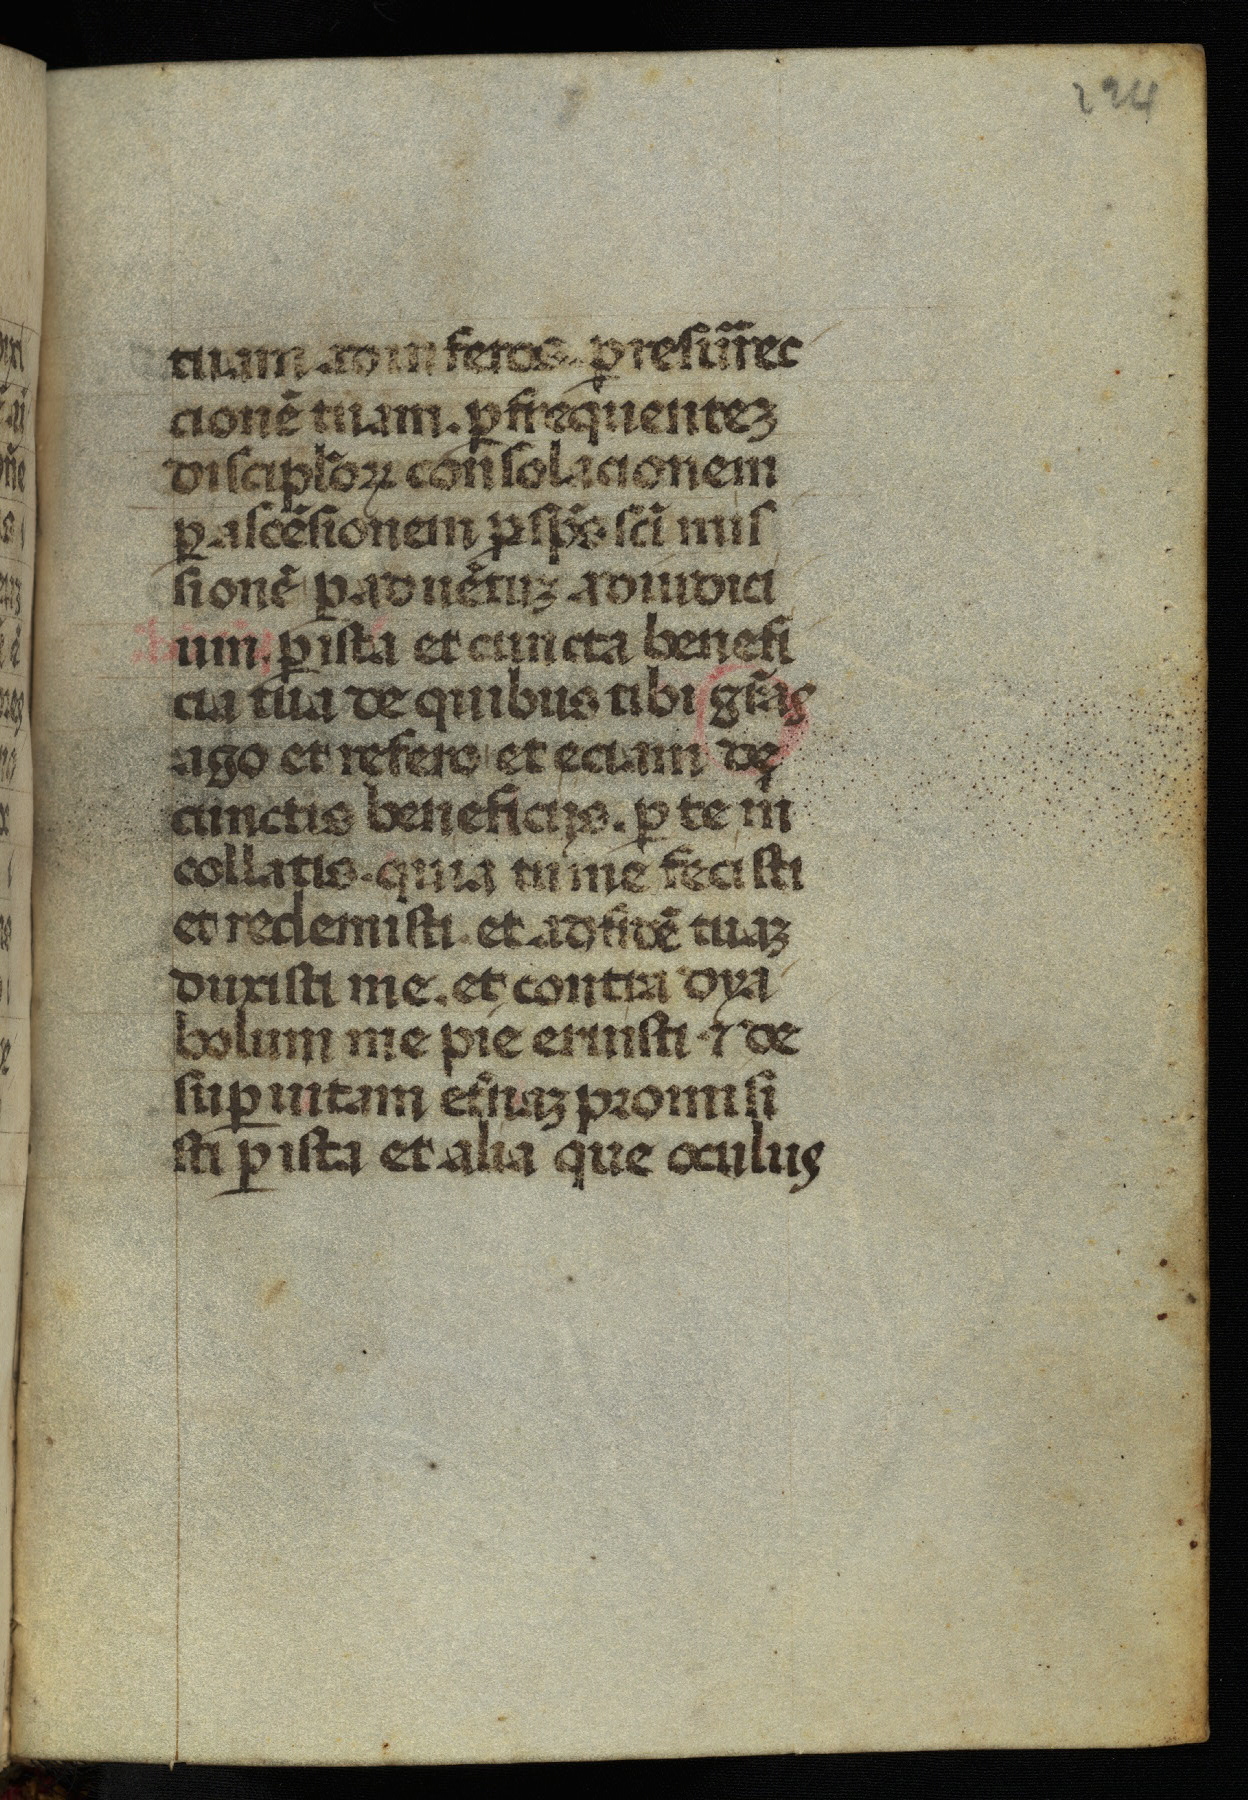 224
tuam ad inferos. ꝑ resurrec
cionē tuam. ꝑ frequenteꝫ
discipl̄oꝝ consolacionem
ꝑ ascēsionem ꝑ sp̄s sc̄i mis
sionē ꝑ aduētuꝫ ad iudici
um. ꝑ ista et cuncta benefi
cia tua de quibus tibi gr̄as
ago et refero et eciam de
cunctis beneficijs. ꝑ te m̄
collatis. quia tu me fecisti
et redemisti. et ad fidē tuaꝫ
duxisti me. et contra dya
bolum me pie eruisti ⁊ de
suꝑ uitam et̄naꝫ promisi
sti ꝑ ista et alia que oculus